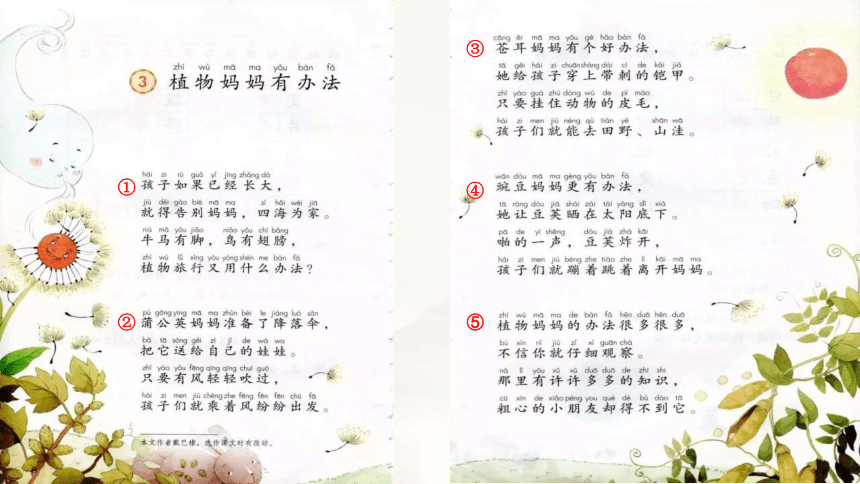 zhí wù mā ma yǒu bàn fǎ
3 植物妈妈有办法
①
hái zi rú guǒ yǐ jīng zhǎng dà
孩子如果已经长大，
jiù děi gào bié mā ma sì hǎi wéi jiā
就得告别妈妈，四海为家。
niú mǎ yǒu jiǎo niǎo yǒu chì bǎng
牛马有脚，鸟有翅膀，
zhí wù lǚ xíng yòu yòng shén me bàn fǎ
植物旅行又用什么办法？
②
pú gōng yīng mā ma zhǔn bèi le jiàng luò sǎn
蒲公英妈妈准备了降落伞，
bǎ tā sòng gěi zì jǐ de wá wa
把它送给自己的娃娃。
zhǐ yào yǒu fēng qīng qīng chuī guò
只要有风轻轻吹过，
hái zi men jiù chéng zhe fēng fēn fēn chū fā
孩子们就乘着风纷纷出发。
本文作者戴巴棣，选作课文时有改动。
③
cāng ěr mā ma yǒu gè hǎo bàn fǎ
苍耳妈妈有个好办法，
tā gěi hái zi chuān shàng dài cì de kǎi jiǎ
她给孩子穿上带刺的铠甲。
zhǐ yào guà zhù dòng wù de pí máo
只要挂住动物的皮毛，
hái zi men jiù néng qù tián yě shān wā
孩子们就能去田野、山洼。
④
wān dòu mā ma gèng yǒu bàn fǎ
豌豆妈妈更有办法，
tā ràng dòu jiá shài zài tài yáng dǐ xià
她让豆荚晒在太阳底下。
pā de yì shēng dòu jiá zhà kāi
啪的一声，豆荚炸开，
hái zi men jiù bèng zhe tiào zhe lí kāi mā ma
孩子们就蹦着跳着离开妈妈。
⑤
zhí wù mā ma de bàn fǎ hěn duō hěn duō
植物妈妈的办法很多很多，
bú xìn nǐ jiù zǐ xì guān chá
不信你就仔细观察。
nà lǐ yǒu xǔ xǔ duō duō de zhī shi
那里有许许多多的知识，
cū xīn de xiǎo péng you què dé bú dào tā
粗心的小朋友却得不到它。